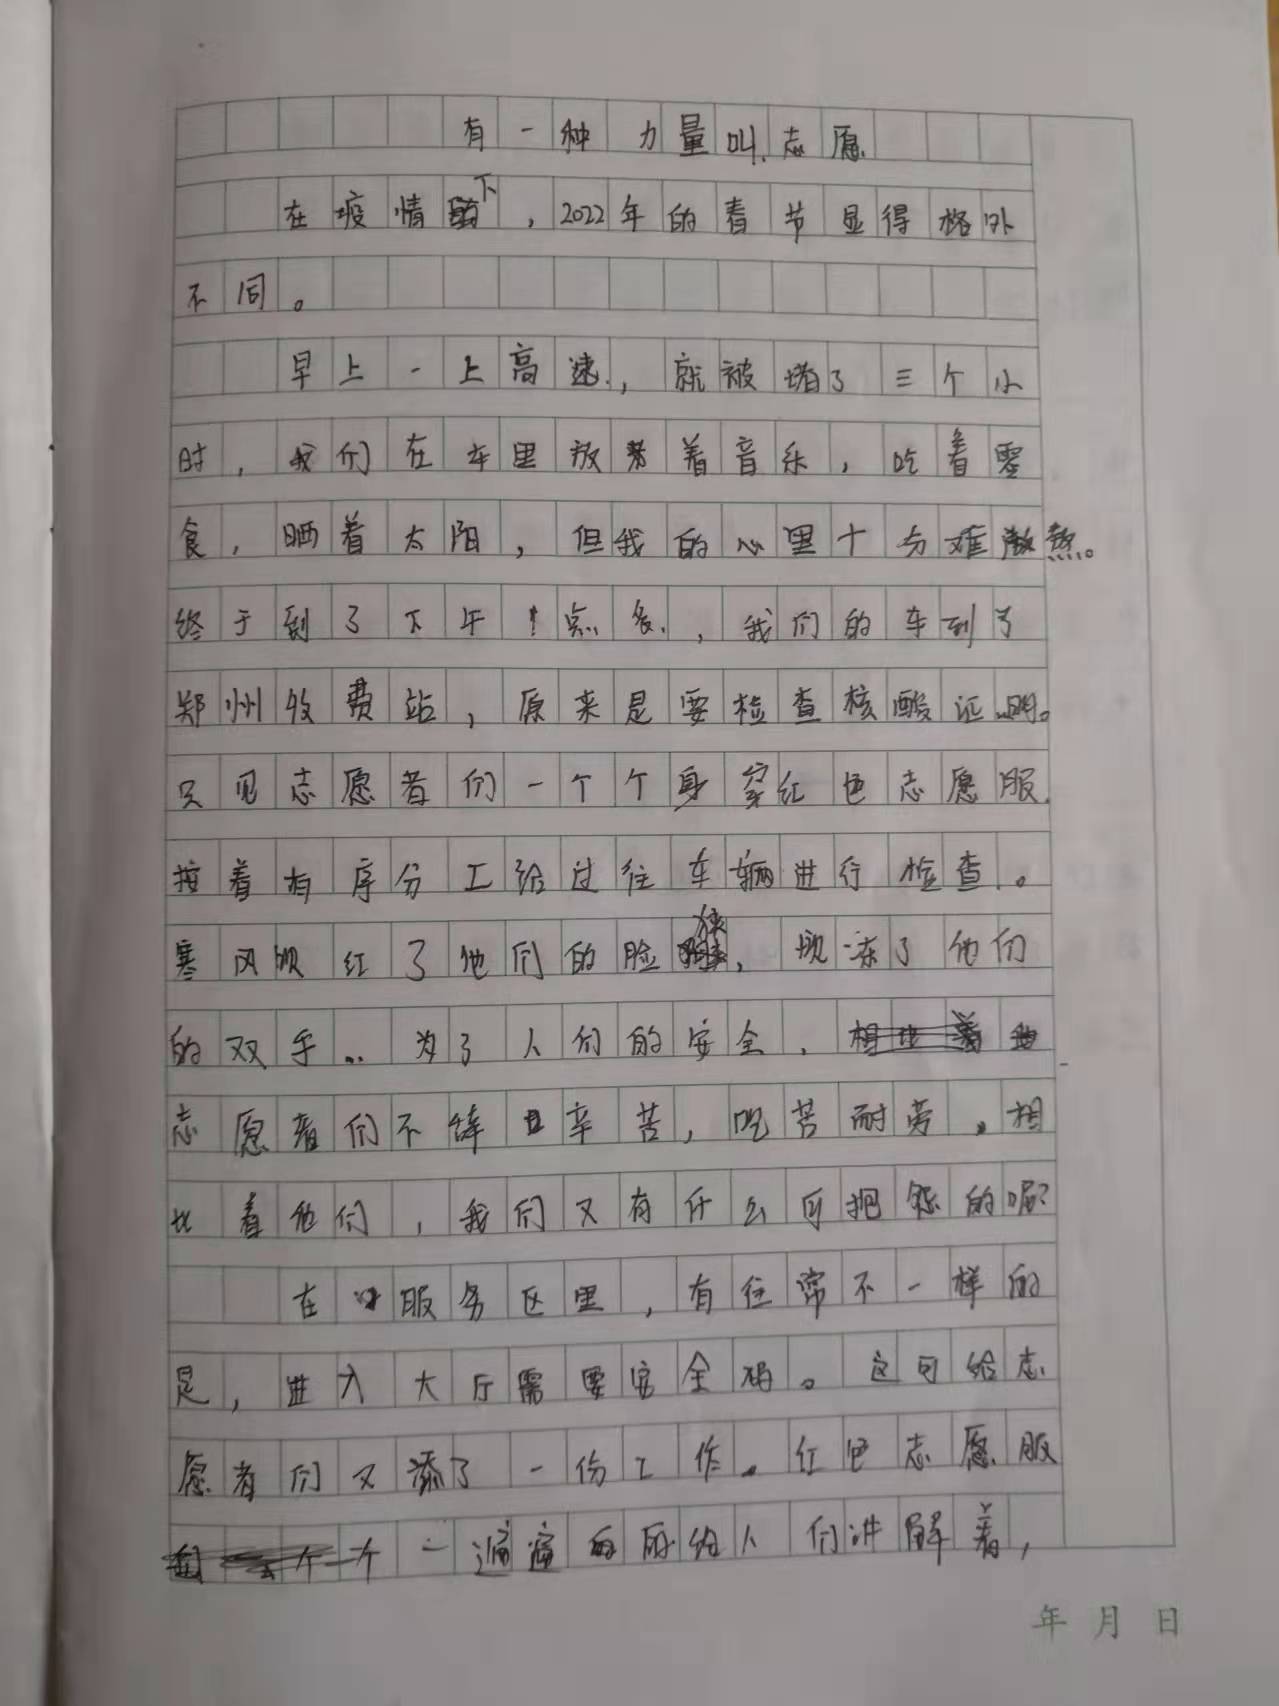 有一种力量叫志愿
在疫情下，2022年的春节显得格外
不同。
早上一上高速，就被堵了三个小
时，我们在车里放着音乐，吃着零
食，晒着太阳，但我的心里十分难熬。
终于到了下午1点多，我们的车到了
郑州收费站，原来是要检查核酸证明。
只见志愿者们一个个身穿红色志愿服
按着有序分工给过往车辆进行检查。
寒风吹红了他们的脸颊，冻了他们
的双手…为了人们的安全，
志愿者们不辞辛苦，吃苦耐劳，相
比着他们，我们又有什么可抱怨的呢？
在服务区里，有往常不一样的
是，进入大厅需要安全码。这可给志
愿者们又添了一份工作。红色志愿服
一遍遍的给人们讲解着，
年 月 日